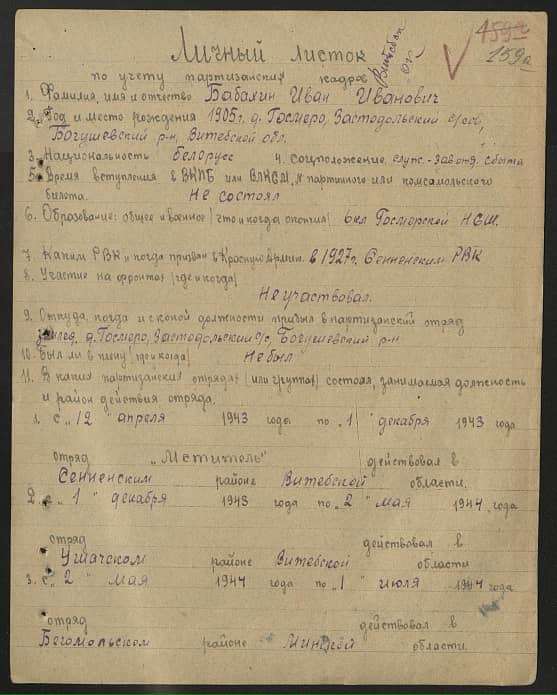 159а
159а
Личный листок
Витебская
обл.
по учету партизанских кадров
1. Фамилия, имя и отчество Бабахин Иван Иванович
2. Год и место рождения 1905 г. д. Госмеро, Застодольский с/сов,
Богушевский р-н, Витебской обл.
3. Национальность белорус 4. Соцположение служ.- Зав отд. сбыта
5. Время вступления в ВКПБ или ВЛКСМ, N партийного или комсомольского
билета. Не состоял
6. Образование: общее и военное (что и когда окончил) 6 кл Госмерской НСШ.
7. Каким РВК и когда призван в Красную Армию. в 1927 г. Сенненским РВК
8. Участие на фронтах (где и когда)
Не участвовал.
9. Откуда, когда и с какой должности прибыл в партизанский отряд
д. Госмеро, Застодольский с/с, Богушевский р-н
10. Был ли в плену (где и когда) Не был
11. В каких партизанских отрядах (или группах) состоял, занимаемая должность
и район действия отряда.
1. с „12" апреля 1943 года по „1" декабря 1943 года
отряд „Мститель" действовал в
Сенненским районе Витебской области.
2. с „1" декабря 1943 года по „2" мая 1944 года
отряд действовал в
Ушачском районе Витебской области
3. с „2" мая 1944 года по „1" июля 1944 года
отряд действовал в
Бегомольском районе Минской области.